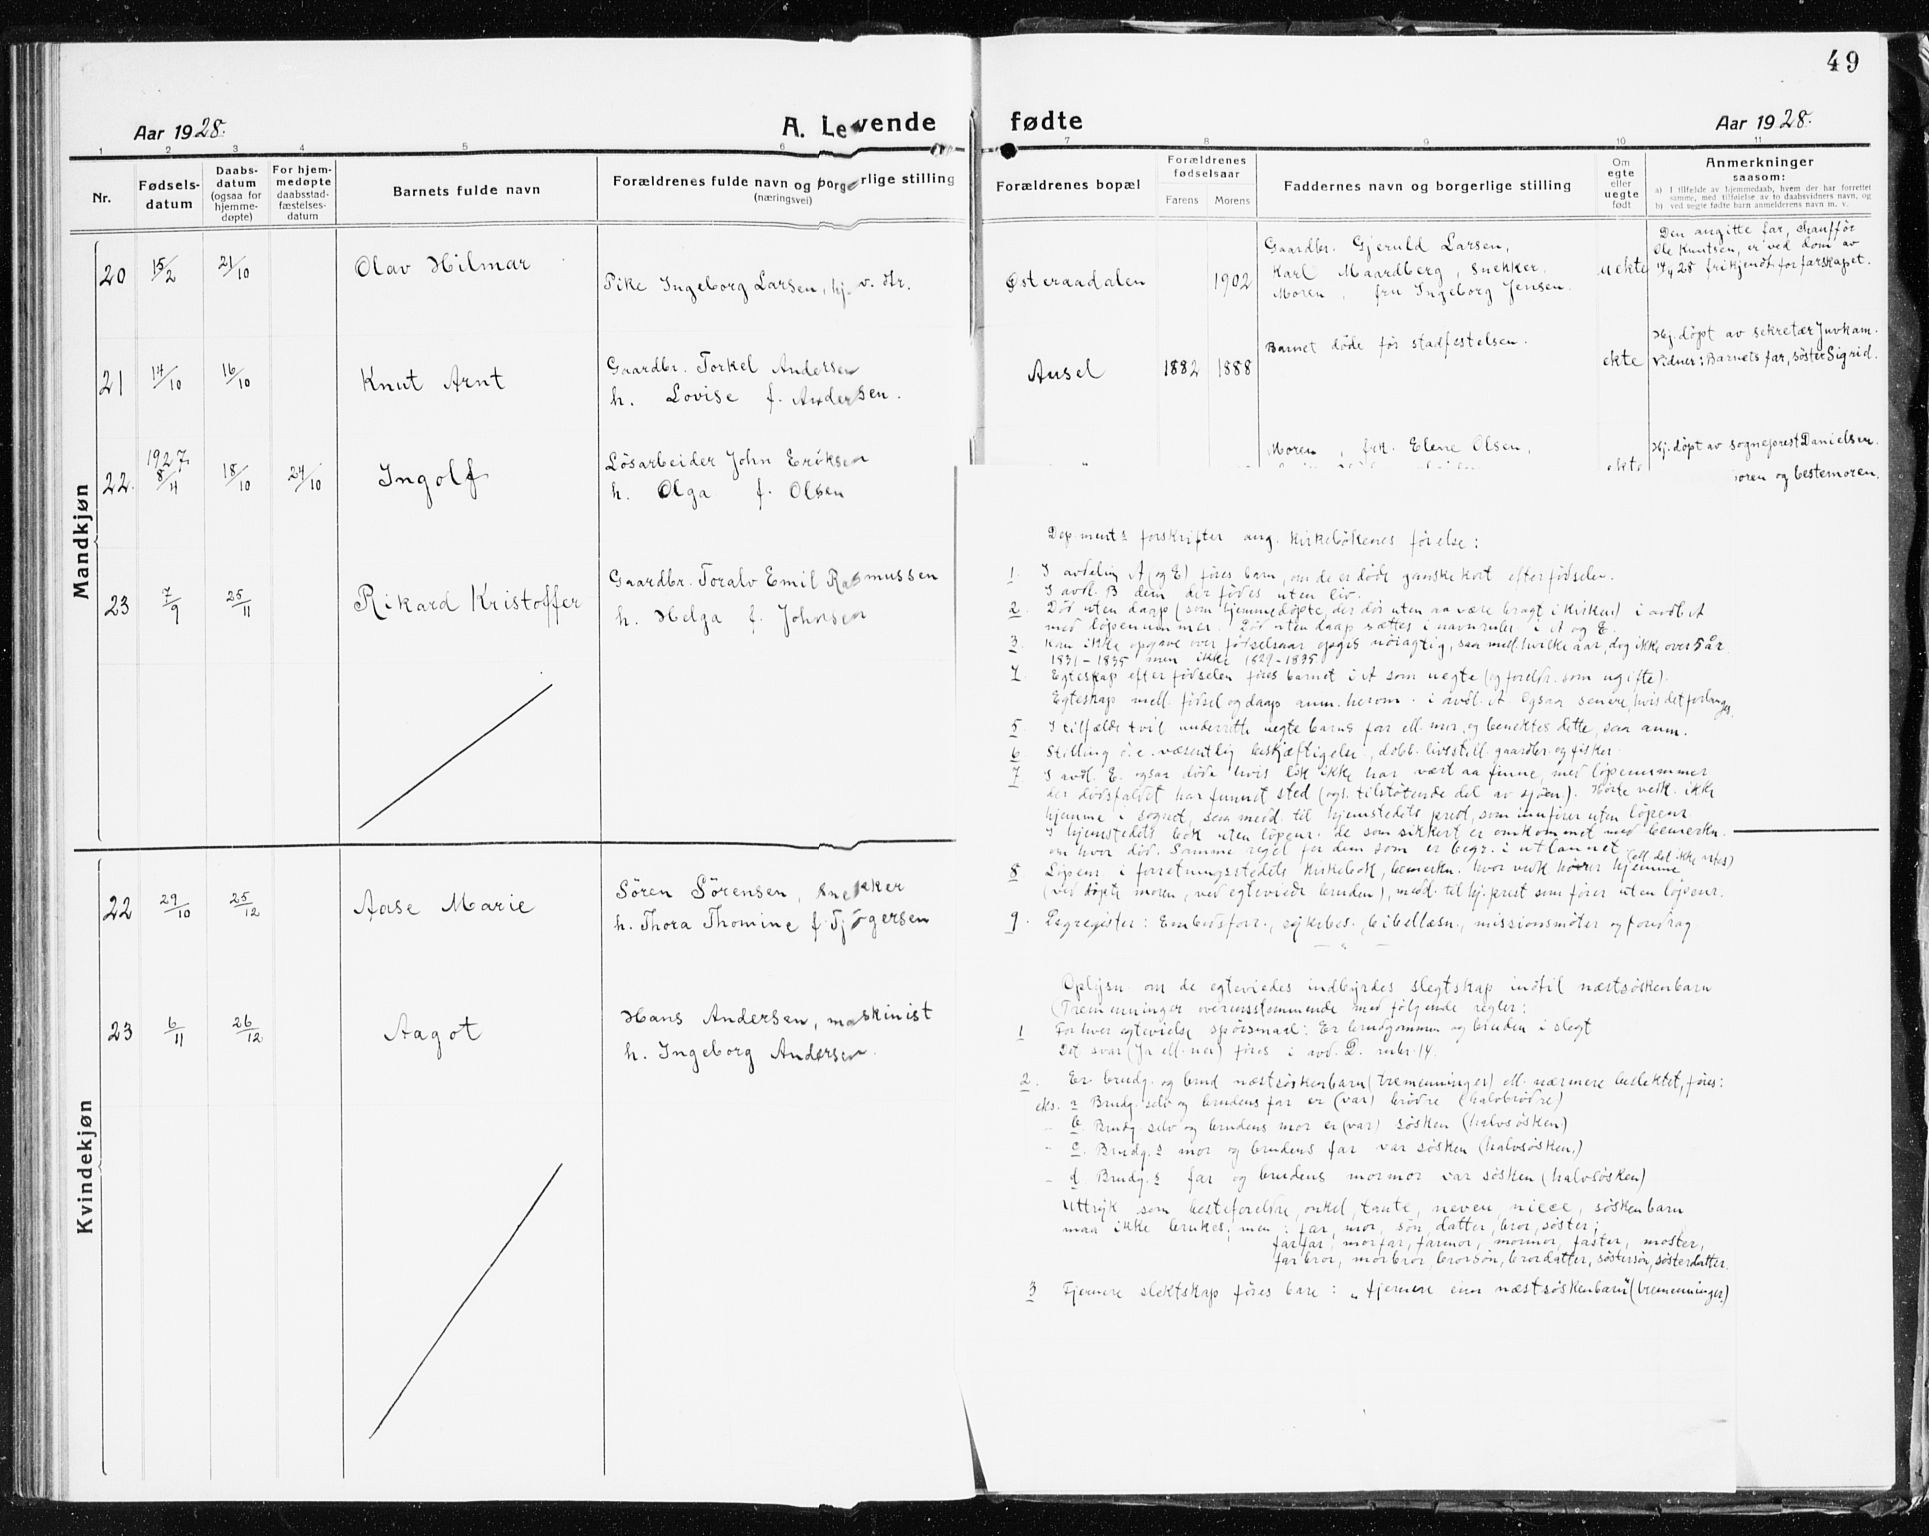 49
Aar 1928.
A. Levende fødte
Aar 1928.
1 2 3 4 5 6 7 8 9 10 11
Nr.
Fødsels-
datum
Daabs-
datum
(ogsaa for
hjemme-
døpte)
For hjem-
medøpte
daabsstad-
fæstelses-
datum
Barnets fulde navn
Forældrenes fulde navn og borgerlige stilling
(næringsvei)
Forældrenes bopæl
Forældrenes
fødselsaar
Farens Morens
Faddernes navn og borgerlige stilling
Om
egte
eller
uegte
født
Anmerkninger
saasom:
a) I tilfelde av hjemmedaab, hvem der har forrettet
samme, med tilføielse av to daabsvidners navn, og
b) ved uegte fødte barn anmelderens navn m. v.
Mandkjøn
20 15/2 21/10 Olav Hilmar
Pike Ingeborg Larsen, hj. v. str.
Østeraadalen 1902
Gaardbr. Gjeruld Larsen,
Karl Maardberg, snekker.
Moren, fru Ingeborg Jensen.
uekte
Den angitte far, chauffør
Ole Knutsen, er ved dom av
17/4 28 frikjendt for farskapet.
21 14/10 16/10 Knut Arnt
Gaardbr. Torkel Andersen
h. Lovise f. Andersen.
Ausel 1882 1888
Barnet døde før stadfestelsen.
ekte
Hj. døpt av sekretær Juvkam.
Vidner: Barnets far, søster Sigrid.
22. 1927 8/11 18/10 24/10 Ingolf
Løsarbeider John Eriksen
h. Olga f. Olsen
Moren, frk. Elene Olsen,
ekte
Hj. døpt av sogneprest Danielsen.
moren og bestemoren.
23 7/9 25/11 Rikard Kristoffer
Gaardbr. Toralv Emil Rasmussen
h. Helga f. Johnsen
Kvindekjøn
22 29/10 25/12 Aase Marie
Sören Sörensen, snekker
h. Thora Thomine f. Tjøgersen
23 6/11 26/12 Aagot
Hans Andersen, maskinist
h. Ingeborg Andersen.
Dep.ments forskrifter ang. kirkebökenes förelse:
1. I avdeling A (og E) föres barn, om de er døde ganske kort efter fødselen.
I avd. B dem der födes uten liv.
2. Död uten daap (som hjemmedöpte, der dör uten aa være bragt i kirken) i avd. A
med löpenummer. Död uten daap sættes i navnrubr. i A og E.
3. Kan ikke opgave over födselsaar opgis nöiagtig, saa mell. hvilke aar, dog ikke over 5 år
1831-1835 men ikke 1829-1835
4. Egteskap efter födselen föres barnet i A som uegte (og foreldr. som ugifte).
Egteskap mell. födsel og daap anm. herom i avd. A. Ogsaa senere, hvis det forlanges.
5. I tilfælde tvil underrette uegte barns far ell. mor, og benektes dette, saa anm.
6. Stilling o: e. væsentlig beskjæftigelse, dobb. livsstill. gaardbr. og fisker.
7. I avd. E. ogsaa døde hvis lik ikke har vært aa finne, med löpenummer
der dödsfaldet har funnet sted (ogs. tilstötende del av sjöen). Hörte vedk. ikke
hjemme i sognet, saa medd. til hjemstedets prest, som innförer uten löpenr.
I hjemstedets bok uten löpenr. de som sikkert er omkommet med bemerkn.
om hvor död. Samme regel for dem som er begr. i utlannet
8. Löpenr. i forretningsstedets kirkebok, bemerkn. hvor vedk. hörer hjemme (ell. det ikke vites)
(ved döpte moren, ved egteviede bruden), medd. til hj. prest som förer uten löpenr.
9. Dagregister: Embedsforr., sykebes., bibellæsn., missionsmöter og foredrag
Oplysn. om de egteviedes indbyrdes slegtskap indtil næstsöskenbarn
(Tremenninger overensstemmende med fölgende regler:
1 For hver egtevielse spörsmaal: Er brudgommen og bruden i slegt
Det svar (Ja ell. nei) föres i avd. D. rubr. 14.
2. Er brudg. og brud næstsöskenbarn (tremenninger) ell. nærmere beslektet, föres:
eks. a Brudg. selv og brudens far er (var) brödre (halvbrödre)
- b. Brudg. selv og brudens mor er (var) söskin (halvsösken)
- c. Brudg.s mor og brudens far var sösken (halvsösken)
- d Brudg.s far og brudens mormor var sösken (halvsösken)
Uttryk som besteforeldre, onkel, tante, neveu, niece, söskenbarn
maa ikke brukes, men: far, mor, sön, datter, bror, söster;
farfar, morfar, farmor, mormor, faster, moster,
farbror, morbror, brorsön, brordatter, söstersön, sösterdatter.
3 Fjernere slektskap föres bare: „fjernere enn næstsöskenbarn" (tremenninger)